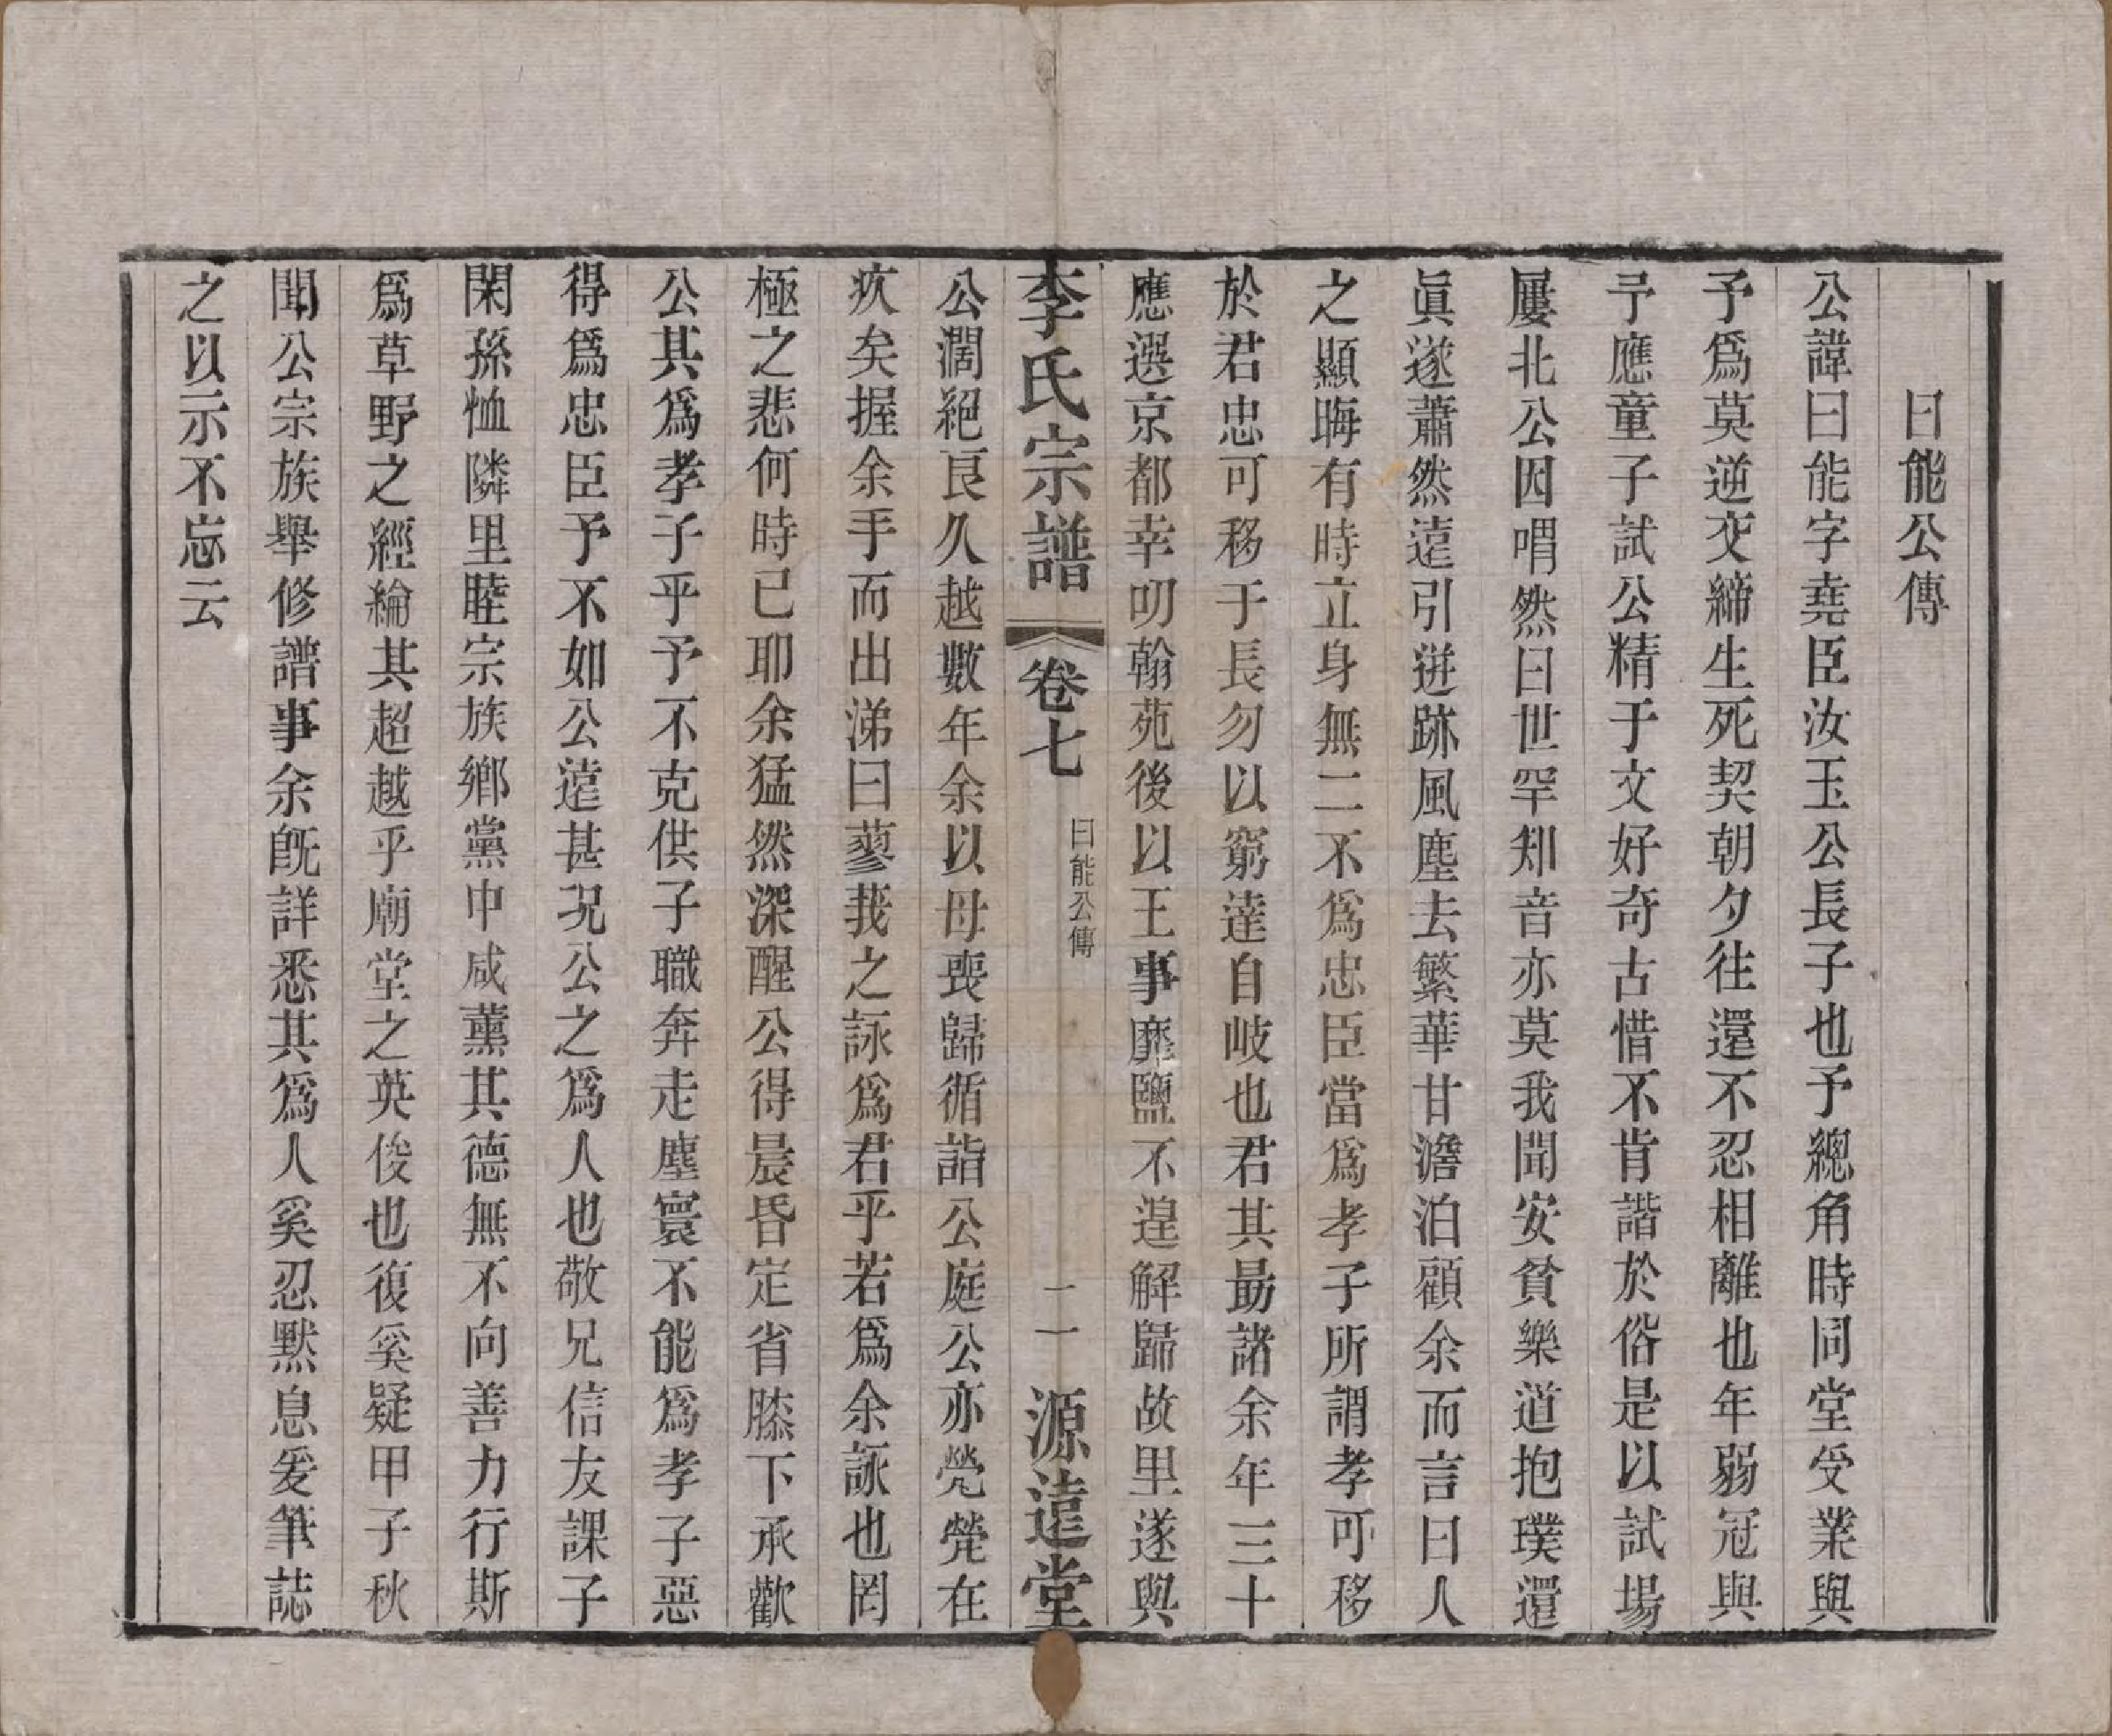 曰能公傳
公諱曰能字堯臣汝玉公長子也予總角時同堂受業與
予爲莫逆交締生死契朝夕往還不忍相離也年弱冠與
予應童子試公精于文好奇古惜不肯諧於俗是以試場
屢北公因喟然曰世罕知音亦莫我聞安貧樂道抱璞還
眞遂蕭然遠引迸跡風塵去繁華甘澹泊顧余而言曰人
之顯晦有時立身無二不爲忠臣當爲孝子所謂孝可移
於君忠可移于長勿以窮達自岐也君其勗諸余年三十
應選京都幸叨翰苑後以王事靡鹽不遑解歸故里遂與
李氏宗譜
卷七
曰能公傳
二一
源遠堂
公濶絕良久越數年余以母喪歸循詣公庭公亦煢煢在
疚矣握余手而出涕曰蓼莪之詠爲君乎若爲余詠也罔
極之悲何時已耶余猛然深醒公得晨昏定省膝下承歡
公其爲孝子乎予不克供子職奔走塵寰不能爲孝子惡
得爲忠臣予不如公遠甚況公之爲人也敬兄信友課子
閑孫恤隣里睦宗族鄉黨中咸薰其德無不向善力行斯
爲草野之經綸其超越乎廟堂之英俊也復奚疑甲子秋
聞公宗族舉修譜事余旣詳悉其爲人奚忍默息爰筆誌
之以示不忘云